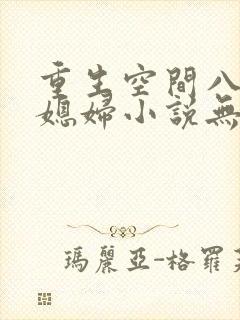 重生空間八
媳婦小説無
瑪麗亞-格羅